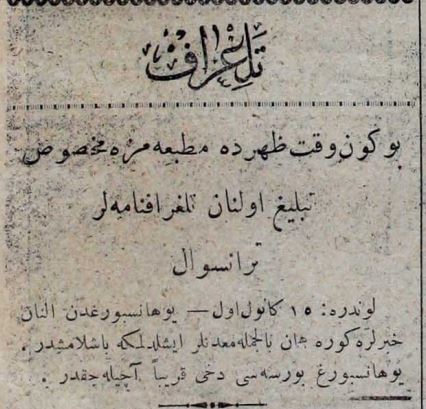 تلغراف
بو كون وقت ظهرده مطبعه مزه مخصوص
تبليغ اولنان تلغرافنامه لر
ترانسوال
لوندره: ١٥ كانون اول — يوهانسبورغدن النان
خبرلره كوره همان بالجمله معدنلر ايشلدلمكه باشلامشدر .
يوهانسبورغ بورسه سى دخى قريباً آچيله جقدر .